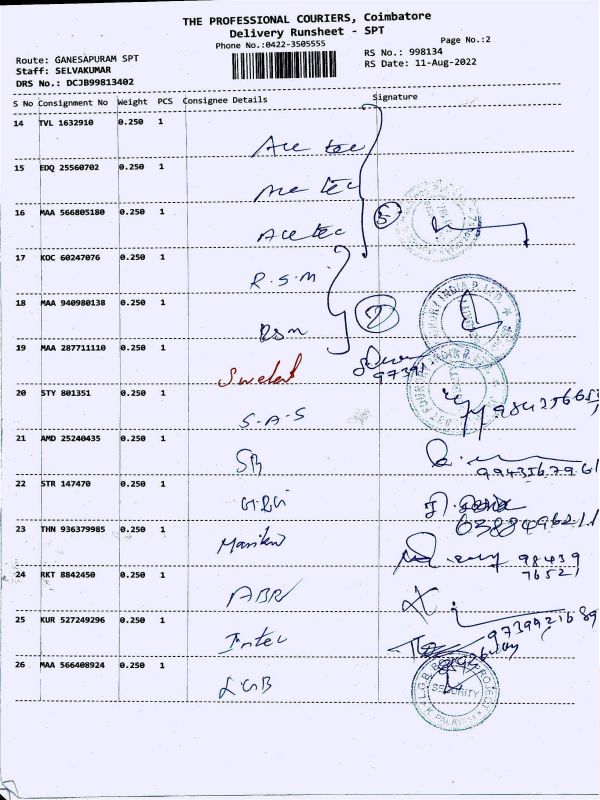 THE PROFESSIONAL COURIERS, Coimbatore
Delivery Runsheet - SPT
Phone No.:0422-3505555
Page No.:2
Route: GANESAPURAM SPT
RS No.: 998134
Staff: SELVAKUMAR
RS Date: 11-Aug-2022
DRS No.: DCJB99813402
S No Consignment No Weight PCS Consignee Details Signature
14 TVL 1632910 0.250 1
15 EDQ 25560702 0.250 1
Ace tec
16 MAA 566805180 0.250 1
Ace tec
5
17 KOC 60247076 0.250 1
R.S.M
18 MAA 940980138 0.250 1
RSM
2
19 MAA 287711110 0.250 1
97391
20 STY 801351 0.250 1
S.A.S
21 AMD 25240435 0.250 1
SB
22 STR 147470 0.250 1
23 THN 936379985 0.250 1
98439
76521
24 RKT 8842450 0.250 1
25 KUR 527249296 0.250 1
Intec
26 MAA 566408924 0.250 1
LGB
SECURITY